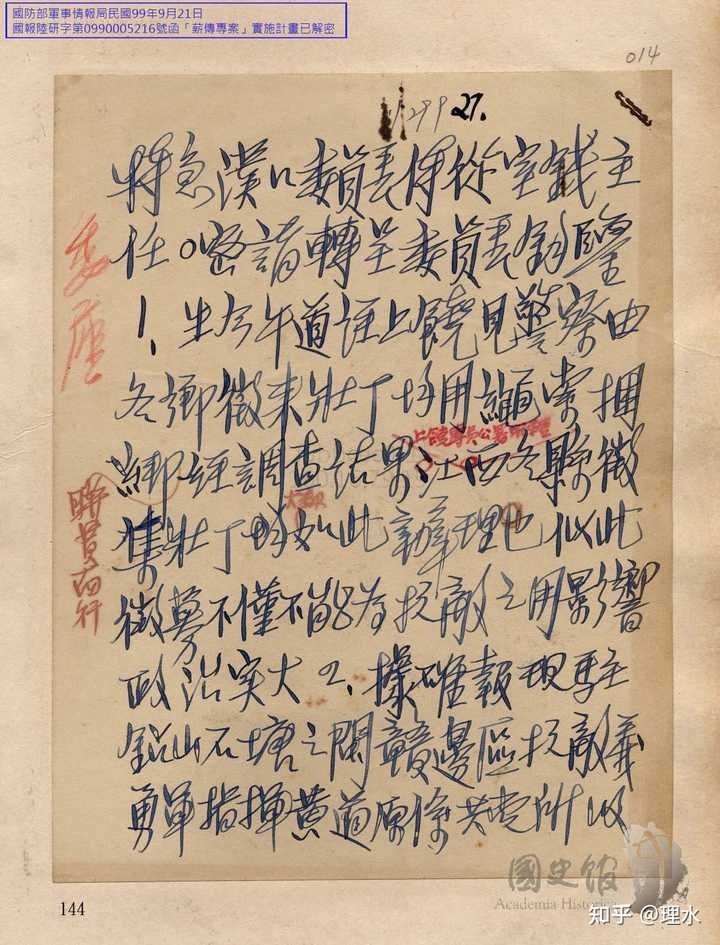 國防部軍事情報局民國99年9月21日
國報陸研字第0990005216號函「薪傳專案」實施計畫已解密
014
299 27.
特急漢口委員長侍從室錢主
任〇密請轉呈委員長鈞鑒
委座
1、生今午道經上饒見警察由
各鄉徵來壯丁均用繩索捆
上饒專員公署
綁經調查結果江西各縣徵
大都
集壯丁均如此辦理也似此
徵募不僅不能為抗敵之用影響
政治实大 2、據確報現駐
鉛山石塘之閩贛邊區抗敵義
勇軍指揮黃道原係共党所收
國史館
Academia Historica
144
知乎 @理水